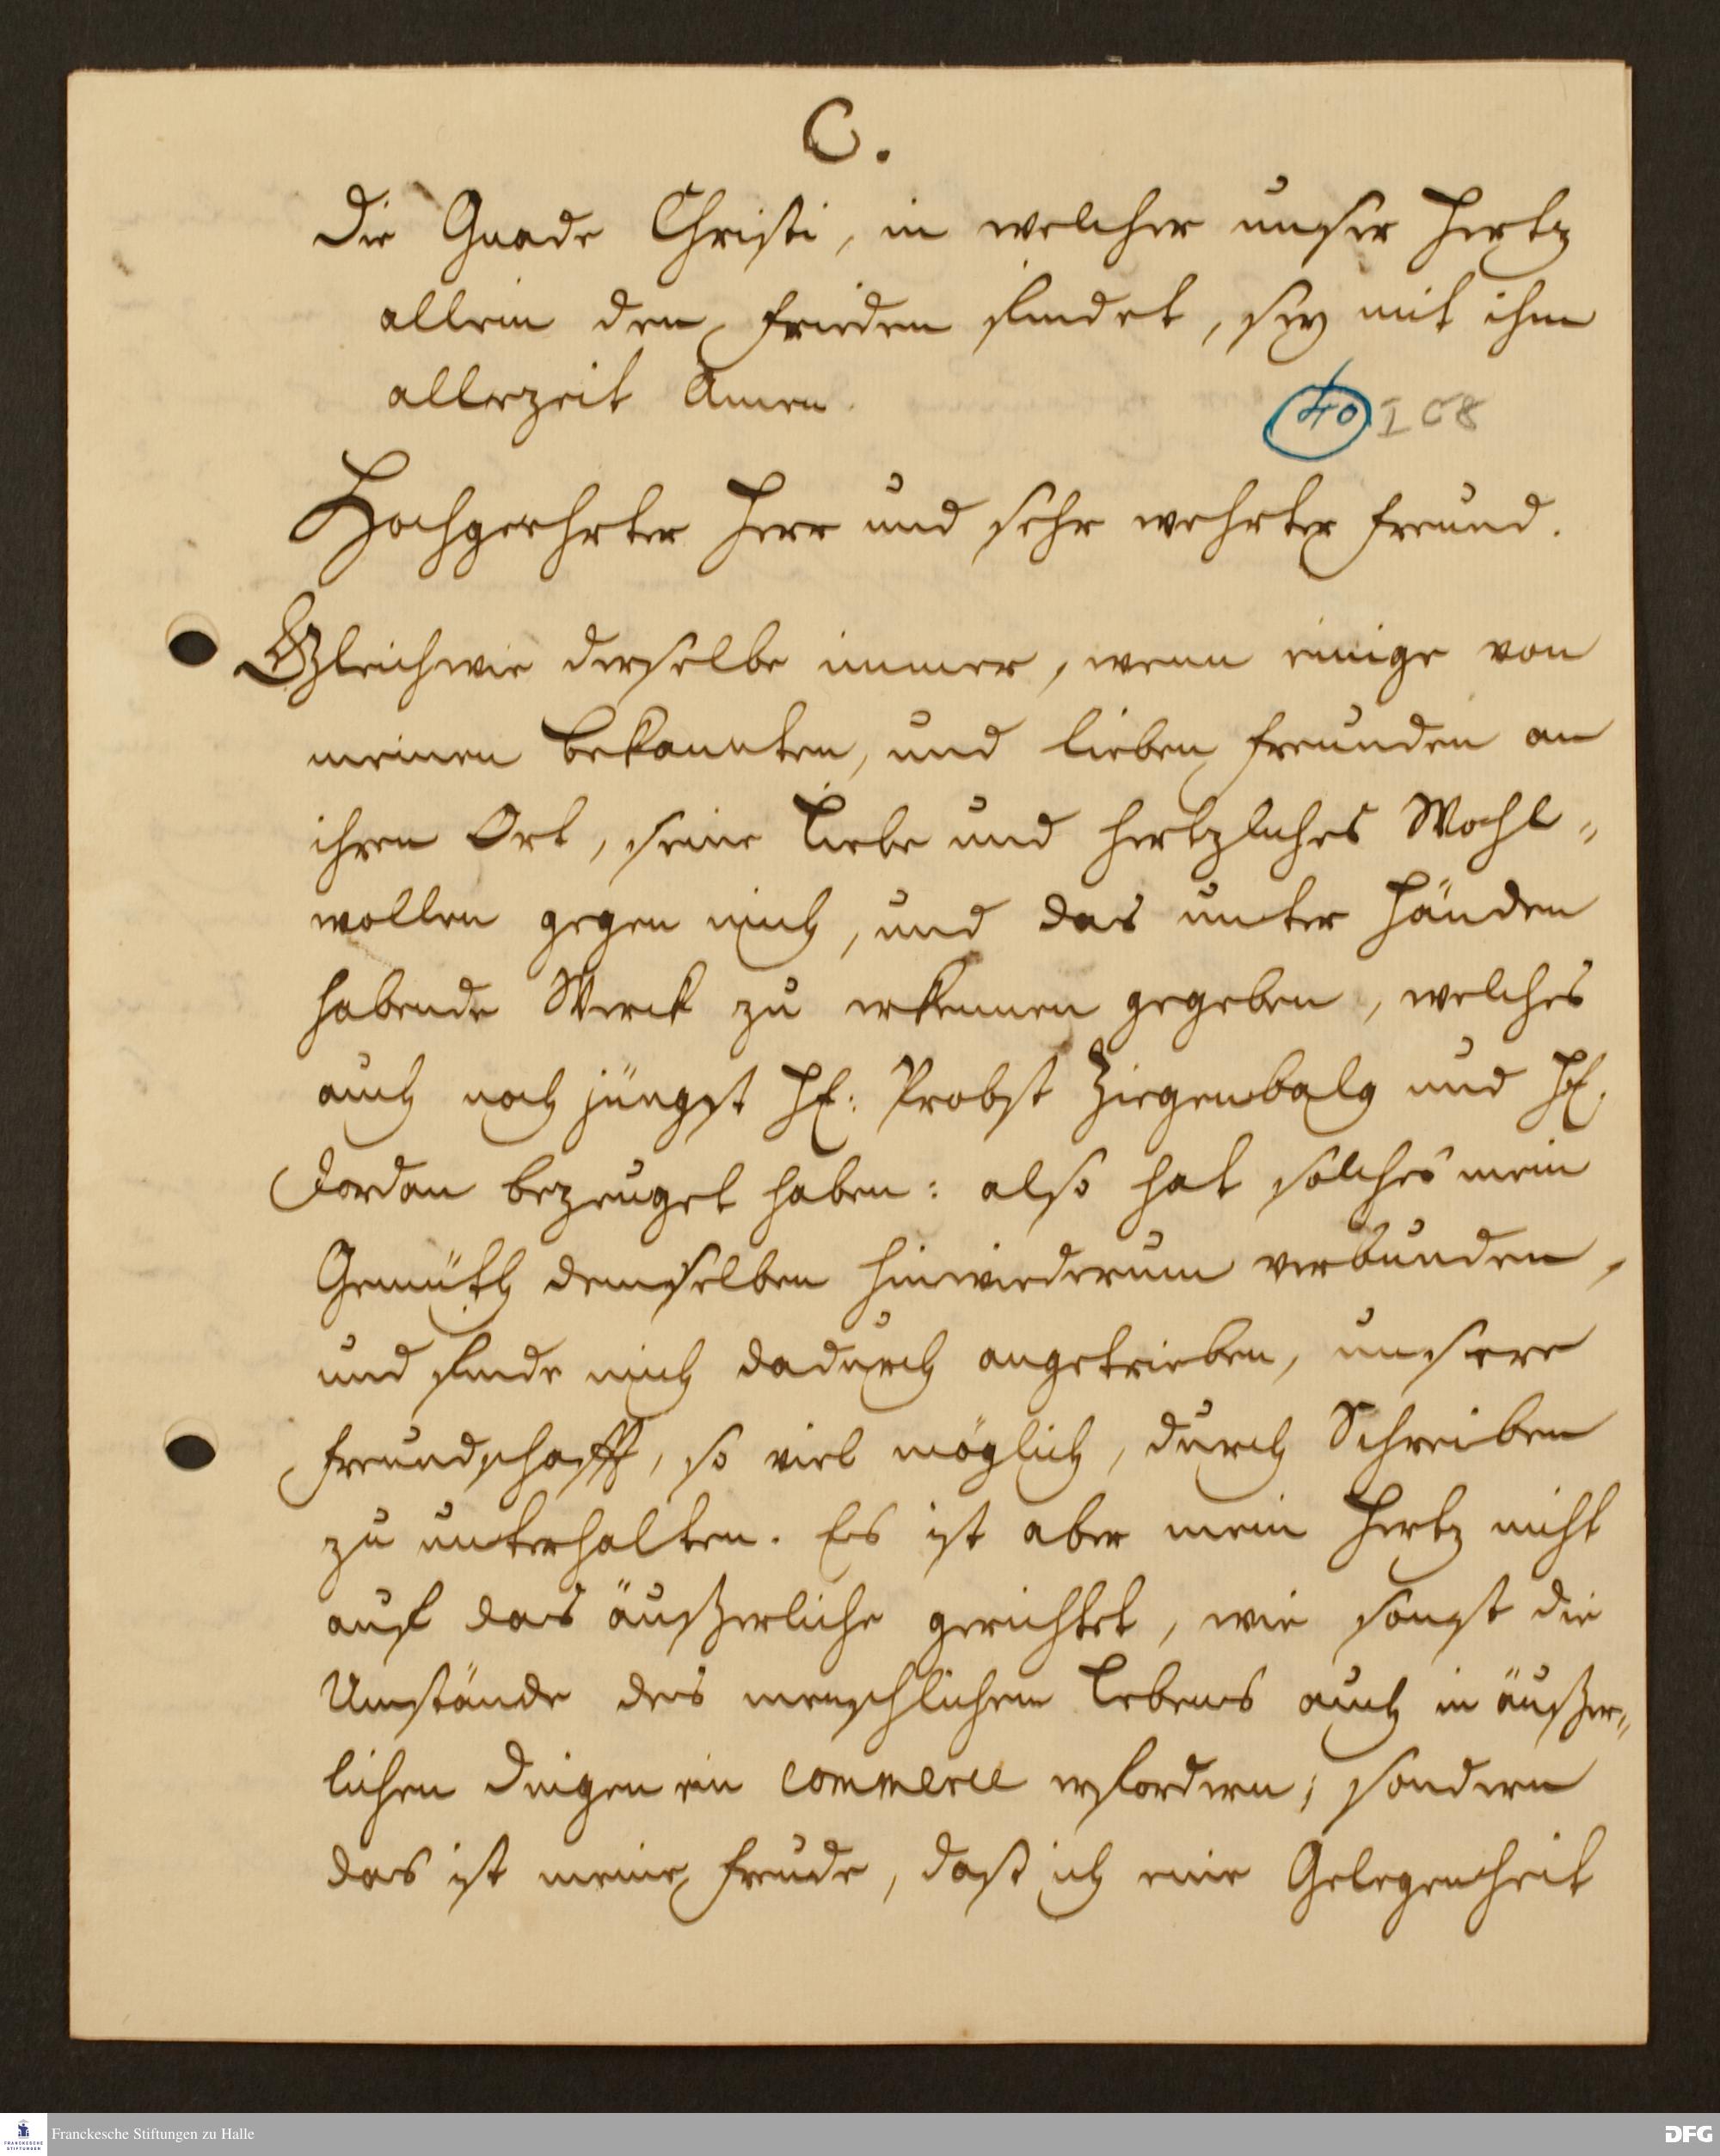 C.
Die Gnade Christi, in welcher unser Hertz
allein den Frieden findet, sey mit ihm
allezeit Amen.
40 I C 8
Hochgeehrter Herr und sehr wehrter Freund.
Gleichwie derselbe immer, wenn einige von
meinen Bekannten, und lieben Freunden an
ihren Ort, seine Liebe und hertzliches Wohl„
wollen gegen mich, und das unter Händen
habende Werck zu erkennen gegeben, welches
auch noch jüngst H: Probst Ziegenbalg und H.
Jordan bezeuget haben: also hat solches mein
Gemüth demselben hinwiederum verbunden,
und finde mich dadurch angetrieben, unsere
Freundschafft, so viel möglich, durch Schreiben
zu unterhalten. Es ist aber mein Hertz nicht
auf das äußerliche gerichtet, wie sonst die
Umstände des menschlichen Lebens auch in äußer„
lichen Dingen ein commerce erfordern; sondern
das ist meine Freude, daß ich eine Gelegenheit
Franckesche Stiftungen zu Halle
FRANCKESCHE STIFTUNGEN
DFG